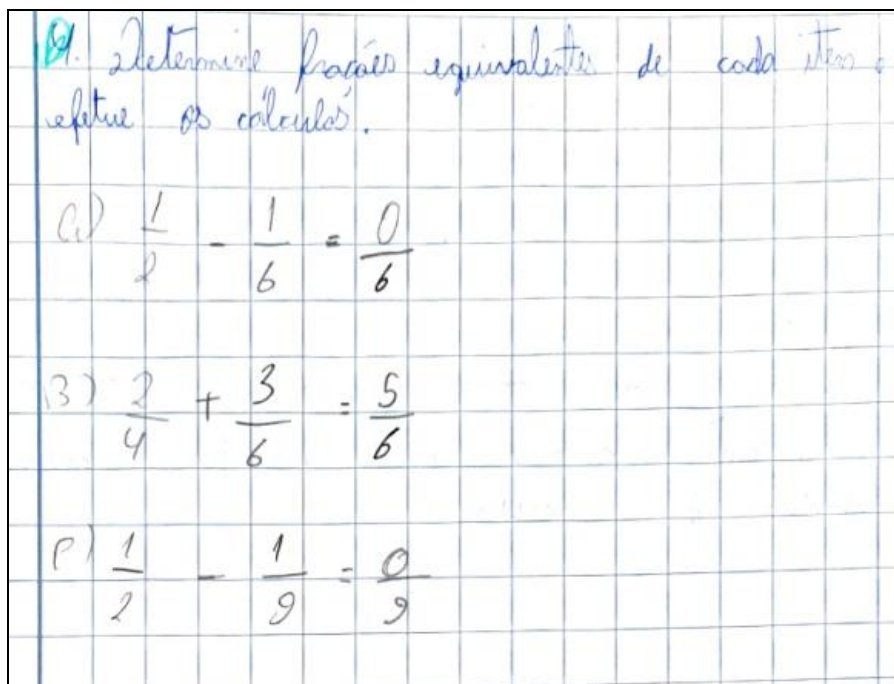 01. Determine frações equivalentes de cada item e
efetue os cálculos.
a) 1/2 - 1/6 = 0/6
B) 2/4 + 3/6 = 5/6
C) 1/2 - 1/9 = 0/9